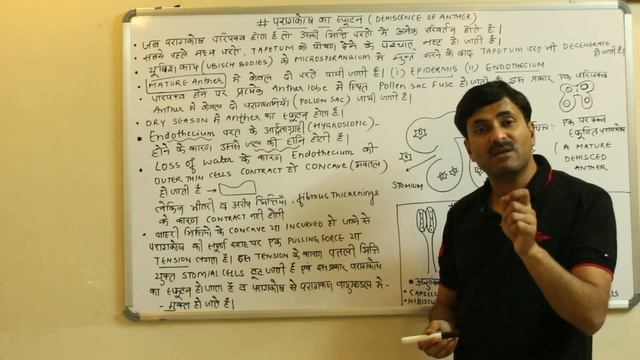 # परागकोष का स्फुटन (DEHISCENCE OF ANTHER)
• जब परागकोष परिपक्व होता है तो उसकी भित्ति परतों में अनेक परिवर्तन होते हैं।
सबसे पहले मध्य परतें, TAPETUM को पोषण देने के पश्चात् नष्ट हो जाती हैं।
• यूबिश काय (UBISCH BODIES) को MICROSPORANGIUM में मुक्त करने के बाद TAPETUM परत भी DEGENERATE हो जाती है।
• MATURE ANTHER में केवल दो परतें पायी जाती हैं। (I) EPIDERMIS (II) ENDOTHECIUM
परिपक्व होने पर प्रत्येक Anther lobe में स्थित Pollen sac fuse हो जाती है इस प्रकार एक परिपक्व
Anther में केवल दो परागधानियाँ (POLLEN SAC) पायी जाती हैं।
• DRY SEASON में Anther का स्फुटन होता है।
• Endothecium परत के आर्द्रताग्राही (HYGROSCOPIC)
होने के कारण उसमें जल की हानि होती है।
• LOSS of WATER के कारण Endothecium की
OUTER THIN CELLS CONTRACT हो CONCAVE (अवतल)
हो जाती है →
लेकिन भीतरी व अरीय भित्तियाँ, fibrous Thickenings
के कारण CONTRACT नहीं होती
• बाहरी भित्तियों के CONCAVE या INCURVED हो जाने से
परागकोष की सम्पूर्ण सतह पर एक PULLING FORCE या
TENSION लगता है। इस TENSION के कारण पतली भित्ति
युक्त STOMIAL CELLS टूट जाती हैं एवं इस प्रकार परागकोष
का स्फुटन हो जाता है व परागकोष से परागकण वायुमण्डल में
- मुक्त हो जाते हैं।
STOMIUM
चित्र:
एक परिपक्व
स्फुटित परागकोष
(A MATURE
DEHISCED
ANTHER
• CAPSELL
• HIBISCU